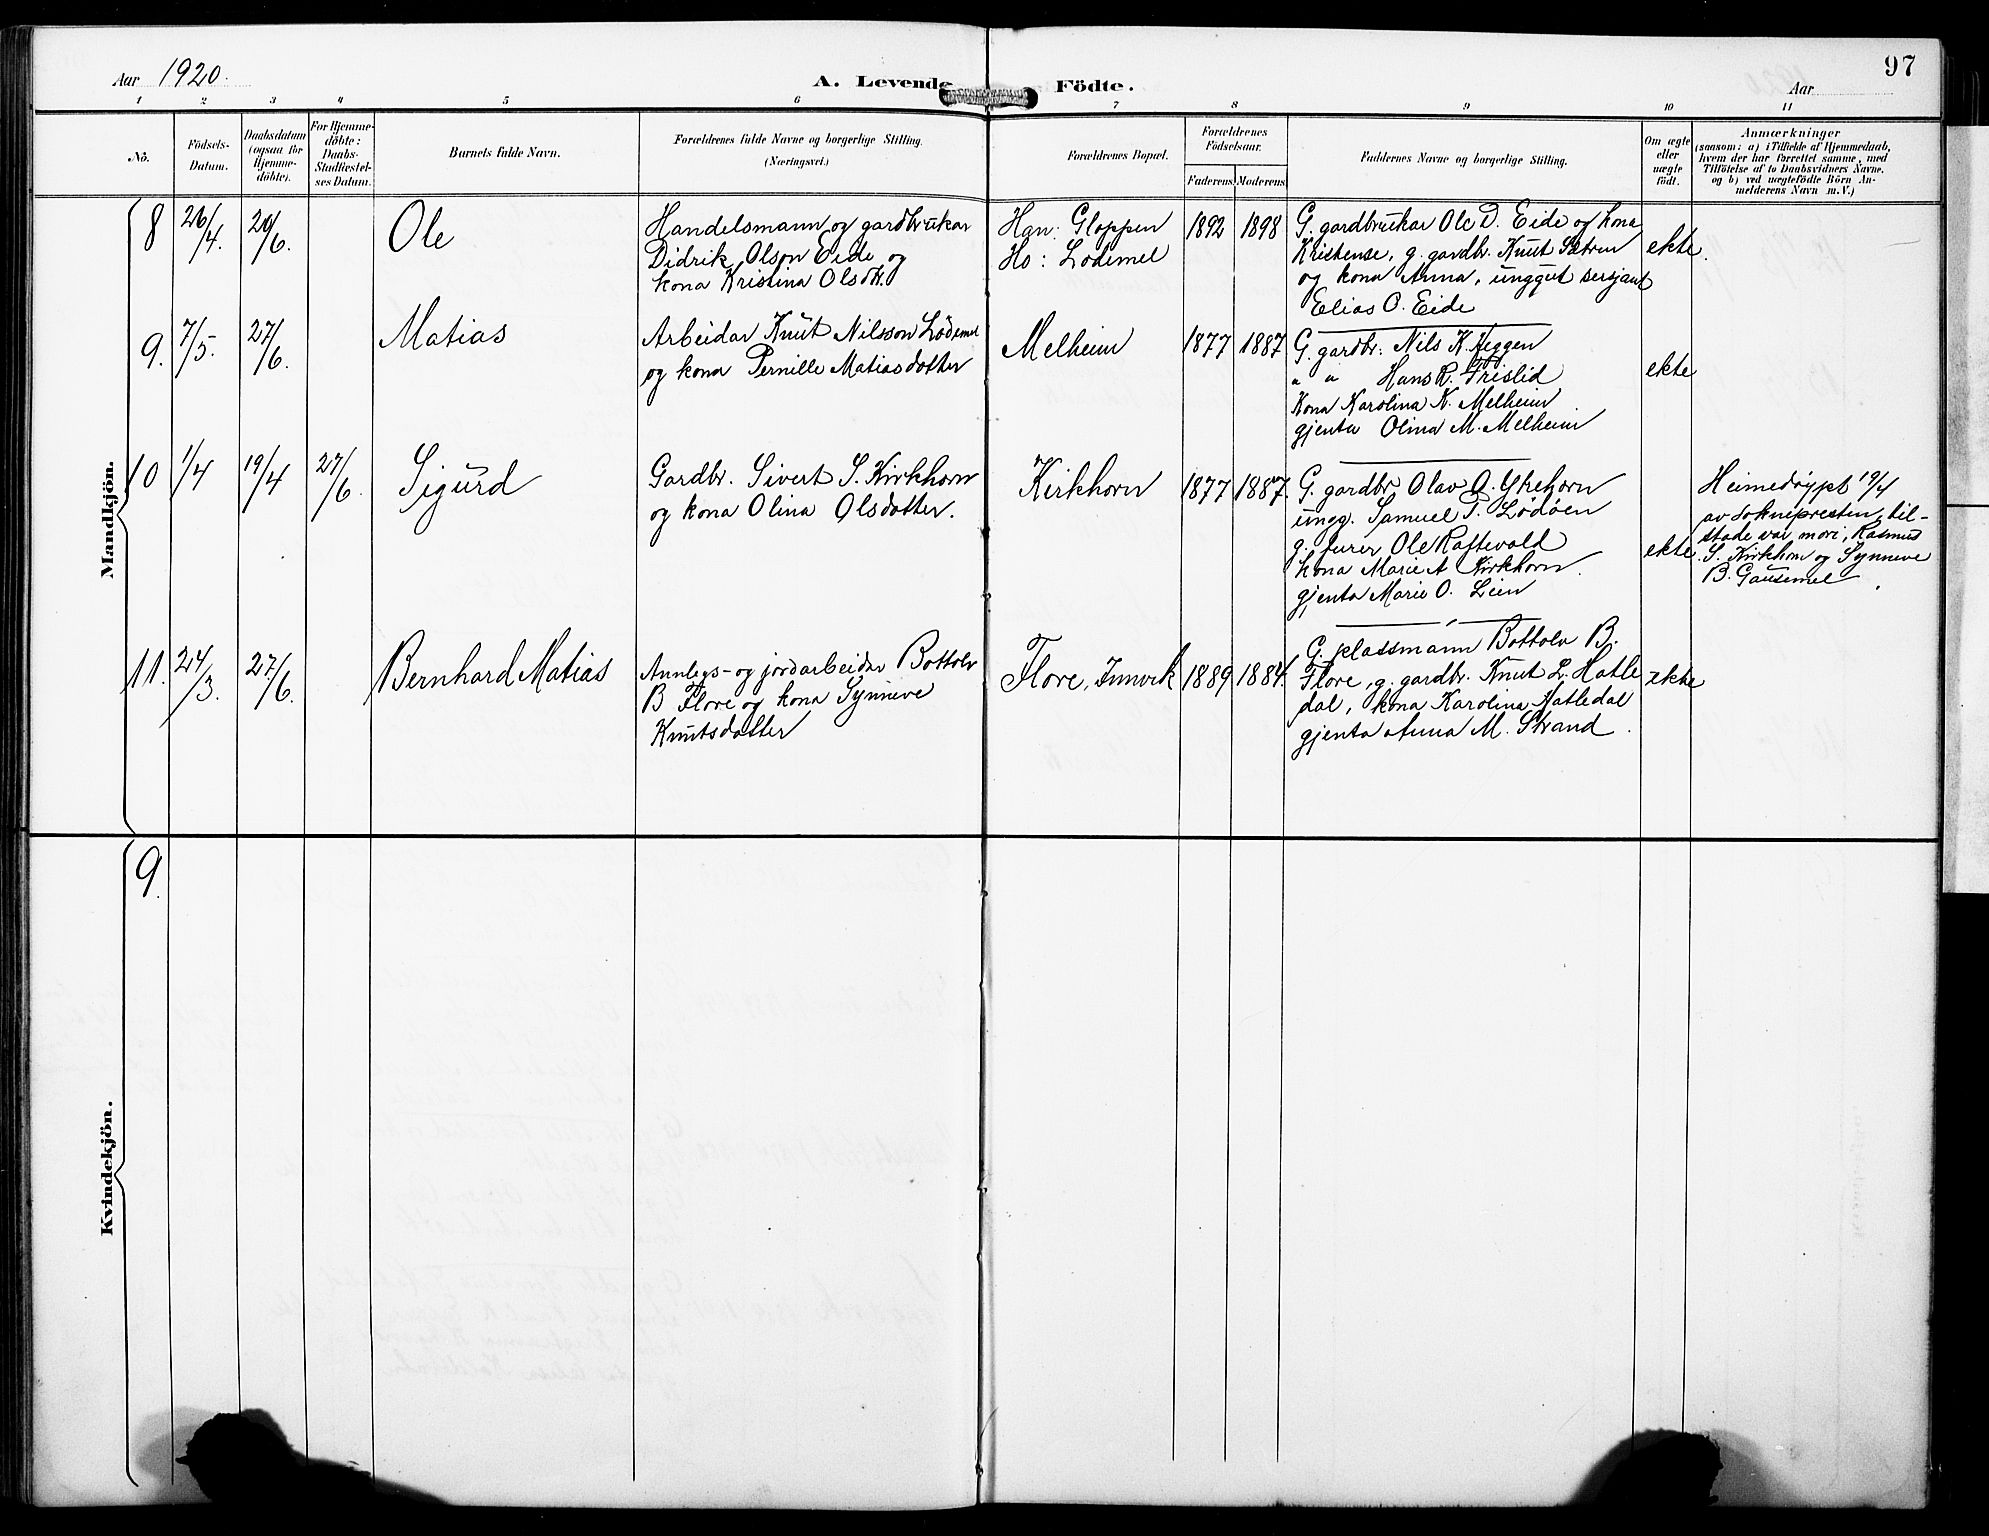 Aar 1920.
A. Levende Födte.
97
Aar
1 2 3 4 5 6 7. 8 9 10 11
No.
Födsels-
Datum.
Daabsdatum
(ogsaa for
Hjemme-
döbte).
For Hjemme-
döbte:
Daabs-
Stadfæstel-
ses Datum.
Barnets fulde Navn.
Forældrenes fulde Navne og borgerlige Stilling.
(Næringsvei.)
Forældrenes Bopæl.
Forældrenes
Födselsaar.
Faderens. Moderens.
Faddernes Navne og borgerlige Stilling.
Om ægte
eller
uægte
födt.
Anmærkninger
(saasom: a) i Tilfælde af Hjemmedaab,
hvem der har forrettet samme, med
Tilföielse af to Daabsvidners Navne.
og b) ved uægtefödte Börn An-
melderens Navn m. V.)
Mandkjön.
8 26/4. 20/6. Ole
Handelsmann og gardbrukar
Didrik Olson Eide og
kona Kristina Olsdtr.
Han: Gloppen
Ho: Lødemel
1892 1898
G. gardbrukar Ole D. Eide og kona
Kristense, g. gardbr. Knut Sætren
og kona Anna, unggut sersjant
Elias O. Eide
ekte.
9. 7/5. 27/6. Matias
Arbeidar Knut Nilsson Lødemel
og kona Pernille Matiasdotter
Melheim
1877 1887
G. gardbr: Nils K. Heggen
" " Hans R. Frislid
Kona Karolina N. Melheim
gjenta Olina M. Melheim
ekte
10 1/4 19/4 27/6. Sigurd
Gardbr. Sivert S. Kirkhorn
og kona Olina Olsdotter.
Kirkhorn
1877 1887.
G. gardbr Olav O. Ytrehorn
ungg. Samuel P. Lødøen
g. furer Ole Raftevold
kona Marie A Kirkhorn.
gjenta Marie O. Lien
ekte
Heimedøypt 19/4
av soknepresten, til-
stade var mori, Rasmus
S. Kirkhorn og Synneve
B. Gausemel
11. 24/3. 27/6. Bernhard Matias
Annlegs- og jordarbeidar Bottolv
B Flore og kona Synneve
Knutsdotter
Flore, Innvik
1889 1884.
G. plassmann Bottolv B.
Flore, g. gardbr. Knut L. Hatle
dal, kona Karolina Hatledal
gjenta Anna M. Strand.
ekte
Kvindekjön.
9.